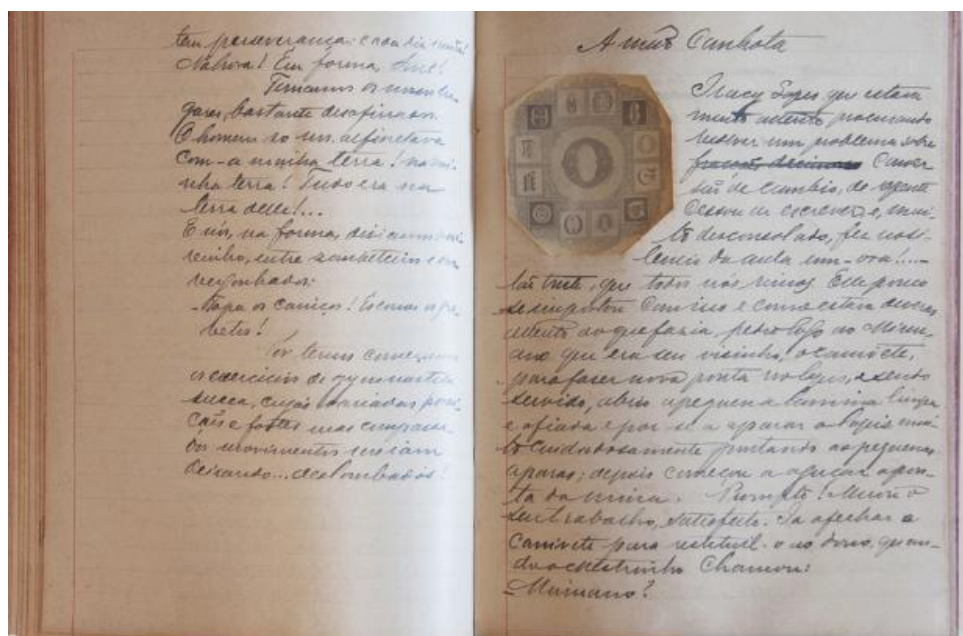 tem perseverança: e con
Nahora! Em forma,
Tomamos os nossos lu-
gares, bastante desafinados.
O homem so nos alfinetava
com - a minha terra! na mi-
nha terra! Tudo era na
terra delle!...
E nós, na forma, diziamos bai-
xinho, entre zombeteiros e en-
vergonhados:
- Tapa os caniços! Escova os ja-
netes!
Por termos começam
os exercicios de gymnastica
sueca, cujas variadas posi-
ções e fortes mas compassa-
dos movimentos nos iam
deixando... deslombados!
A mão Canhota
Iracy Lopes que estava
muito attento procurando
resolver um problema sobre
fracções decimaes Conver
são de Cambio, de repente
Cessou de escrever e, mui-
to desconsolado, fez no si-
lencio da aula um - ora!....-
tão triste, que todos nós rimos. Elle pouco
se importou Com isso e como estava
attento ao que fazia, pedio logo ao Mecun-
ano que era seu visinho, o canivete,
para fazer nova ponta no lapis, e sendo
servido, abriu a pequena lamina limpa
e afiada e poz-se a aparar o lapis mui-
to cuidadosamente juntando as pequenas
aparas; depois começou a aguçar a pon-
ta da mina. Prompto! Mirou o
seu trabalho, satisfeito. Ia a fechar o
Canivete para restituil-o ao dono, quan-
do o Chamou: